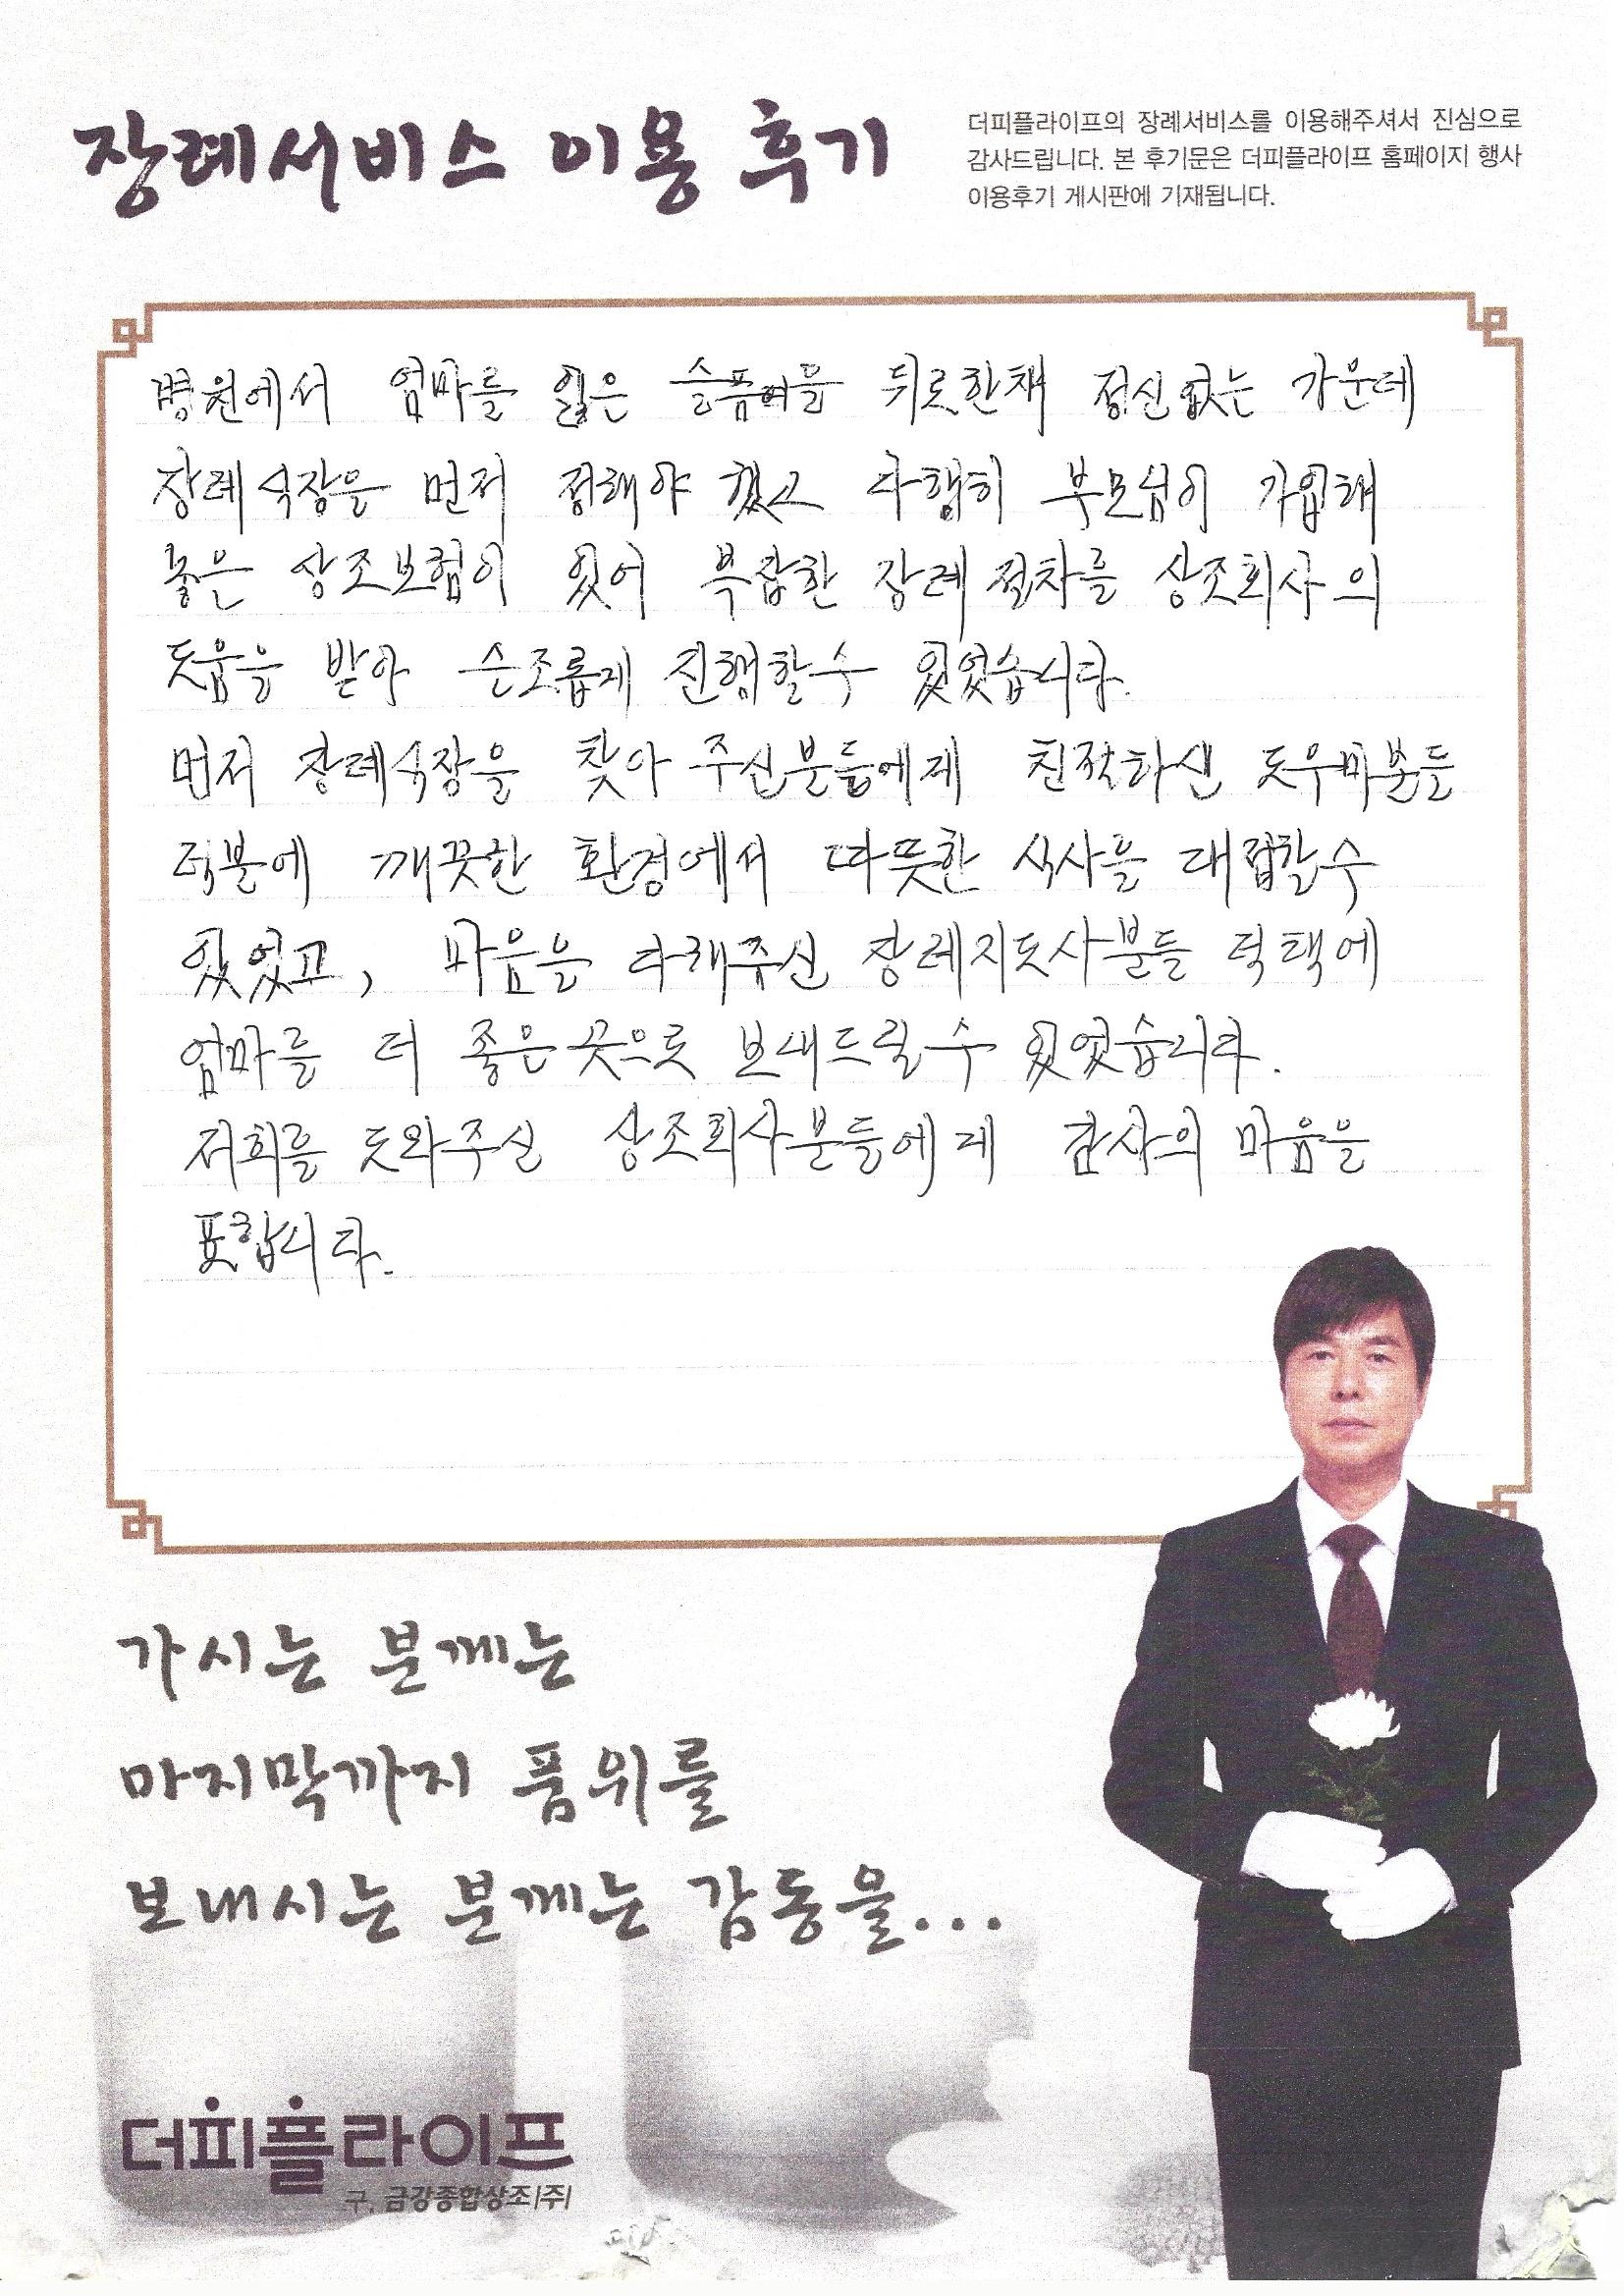 장례서비스 이용 후기
더피플라이프의 장례서비스를 이용해주셔서 진심으로
감사드립니다. 본 후기문은 더피플라이프 홈페이지 행사
이용후기 게시판에 기재됩니다.
병원에서 엄마를 잃은 슬픔을 뒤로한채 정신없는 가운데
장례식장을 먼저 정해야 했고 다행히 부모님이 가입해
놓은 상조보험이 있어 복잡한 장례절차를 상조회사의
도움을 받아 순조롭게 진행할수 있었습니다.
먼저 장례식장을 찾아 주신분들에게 친절하신 도우미분들
덕분에 깨끗한 환경에서 따뜻한 식사를 대접할수
있었고, 마음을 다해주신 장례지도사분들 덕택에
엄마를 더 좋은곳으로 보내드릴수 있었습니다.
저희를 도와주신 상조회사분들에게 감사의 마음을
표합니다.
가시는 분께는
마지막까지 품위를
보내시는 분께는 감동을...
더피플라이프
구. 금강종합상조(주)